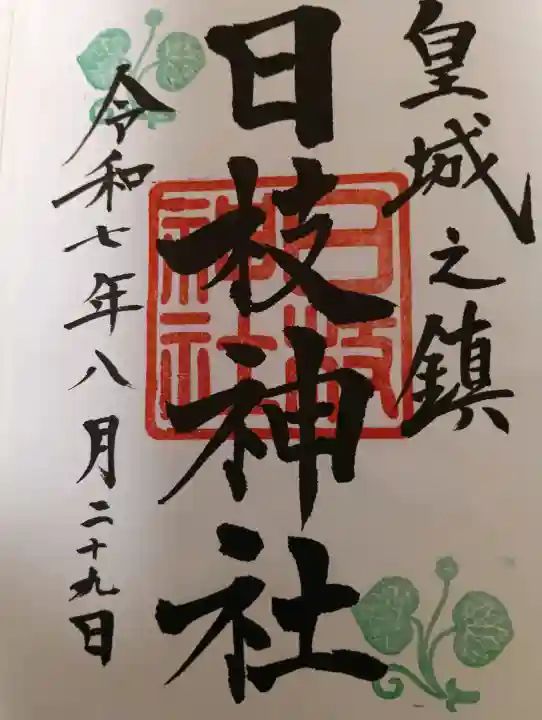 皇城之鎮
日枝神社
日枝
神社
令和七年八月二十九日